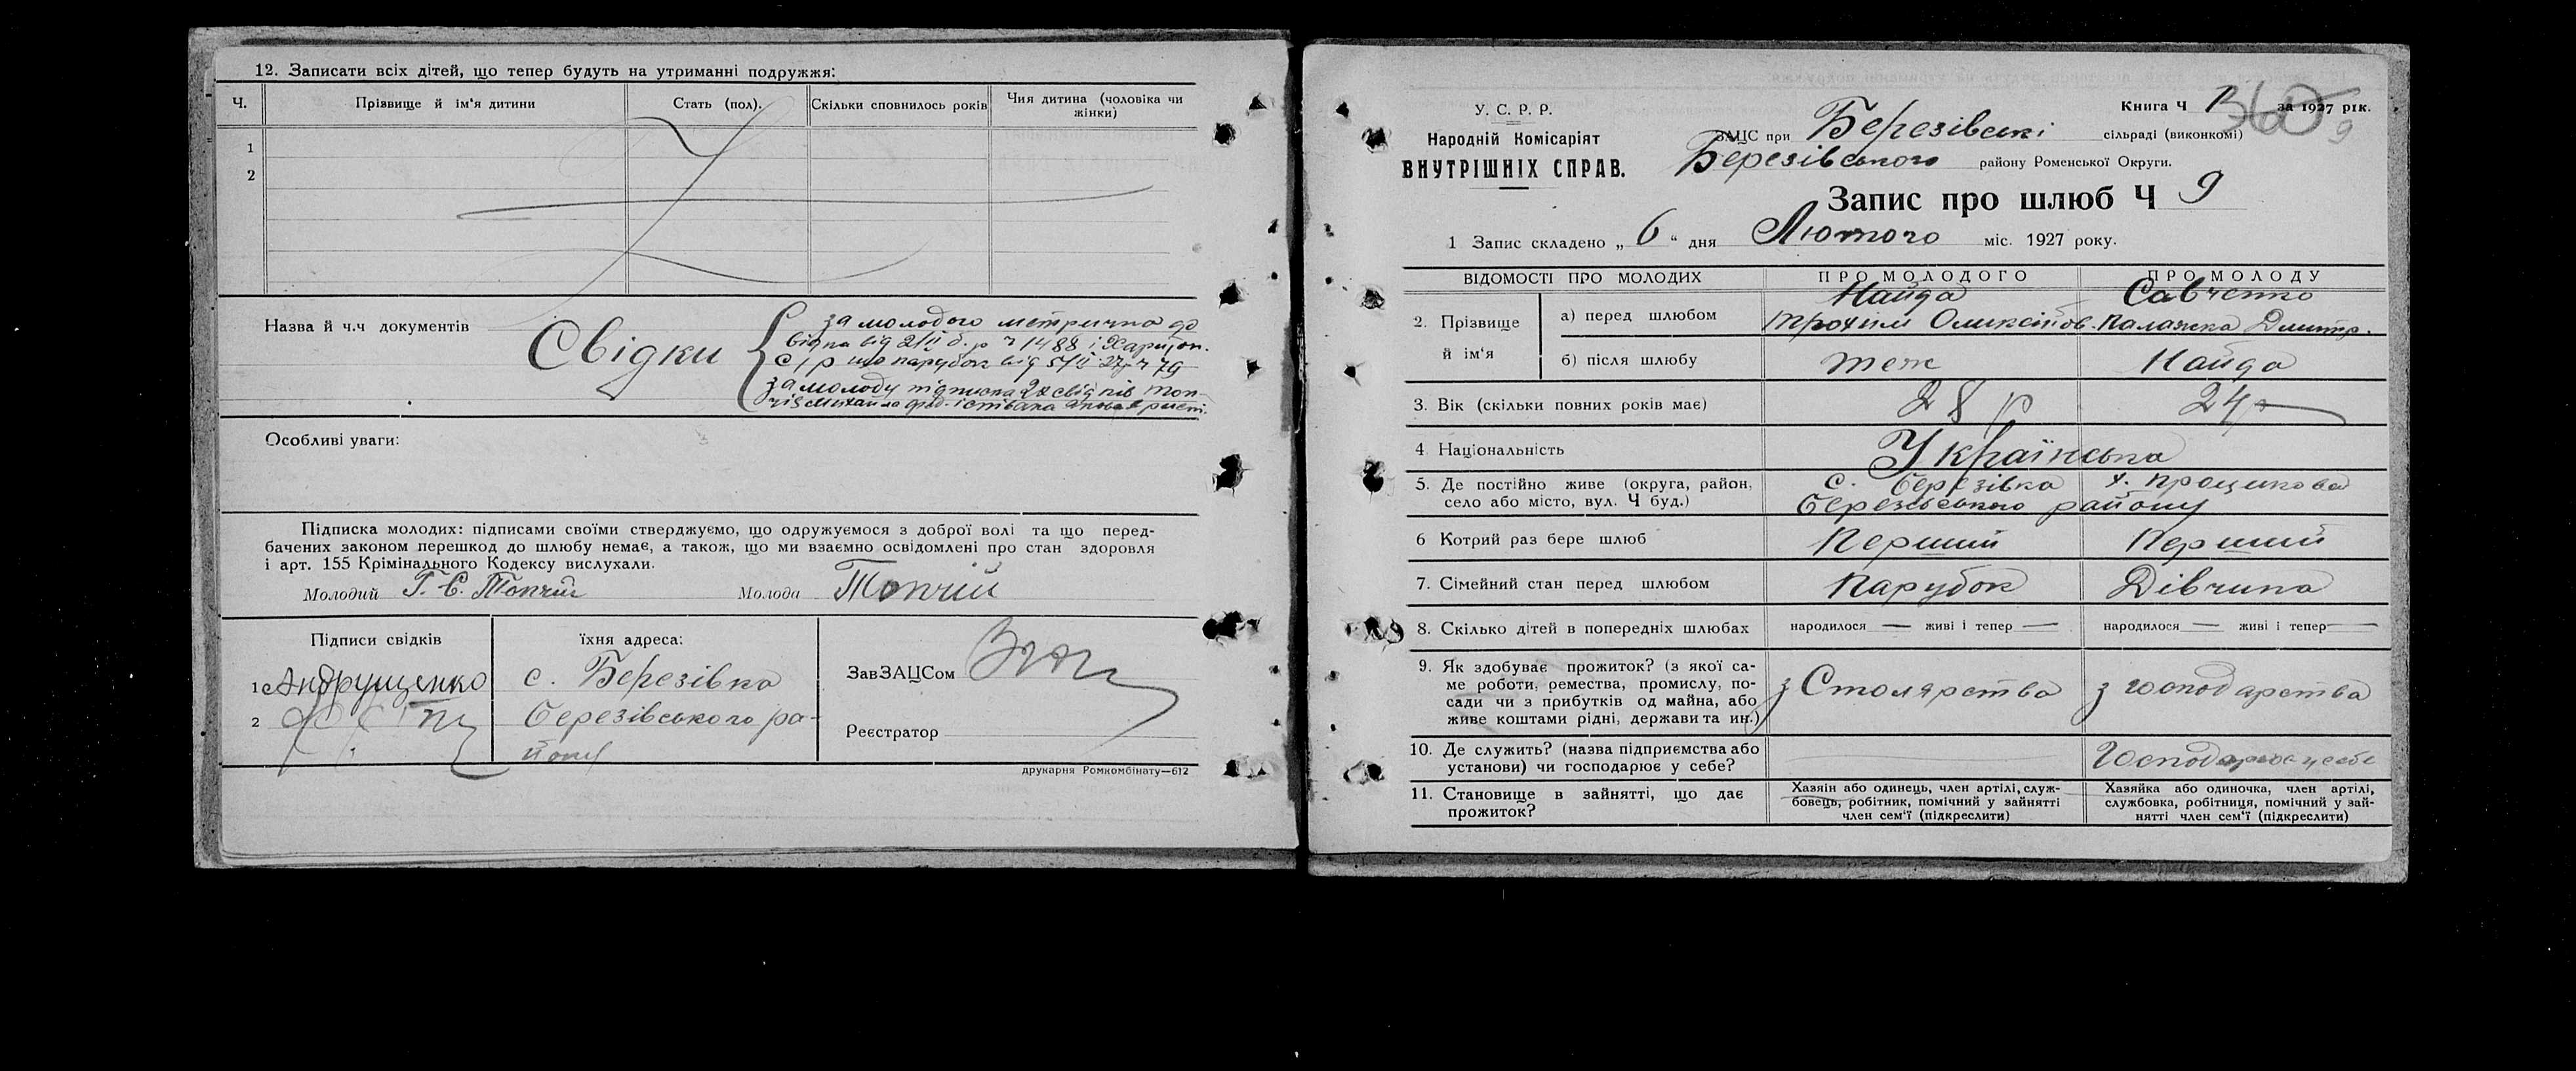 12. Записати всіх дітей, що тепер будуть на утриманні подружжя:
Ч. Прізвище й ім'я дитини Стать (пол). Скільки сповнилось років Чия дитина (чоловіка чи жінки)
1
2
Назва й ч.ч документів Свідки
за молодого метрична до
відка від 2/II б. р ч 1488 і Харитон.
с/р що парубок від 5/II 27р ч 79
за молоду підписка 2х свідків Топ-
чія Михайла
Особливі уваги:
Підписка молодих: підписами своїми стверджуємо, що одружуємося з доброї волі та що перед-
бачених законом перешкод до шлюбу немає, а також, що ми взаємно освідомлені про стан здоровля
і арт. 155 Крімінального Кодексу вислухали.
Молодий Г. Є. Топчій Молода Топчій
Підписи свідків їхня адреса:
1 Андрущенко с. Березівка ЗавЗАЦСом
2 Березівського ра-
йону Реєстратор
друкарня Ромкомбінату—612
У. С. Р. Р.
Народній Комісаріят
ВНУТРІШНІХ СПРАВ.
Книга Ч 1 за 1927 рік.
360
9
ЗАЦС при Березівські сільраді (виконкомі)
Березівського району Роменської Округи.
Запис про шлюб Ч 9
1 Запис складено „ 6 “ дня Лютого міс. 1927 року.
ВІДОМОСТІ ПРО МОЛОДИХ ПРО МОЛОДОГО ПРО МОЛОДУ
2. Прізвище й ім'я
а) перед шлюбом Найда Савченко
Трохим Оликсійов. Палажка Дмитр.
б) після шлюбу теж Найда
3. Вік (скільки повних років має) 28 р 24 р
4. Національність Українська
5. Де постійно живе (округа, район, с. Березівка х. Процикова
село або місто, вул. Ч буд.) Березівського району
6 Котрий раз бере шлюб Перший Перший
7. Сімейний стан перед шлюбом Парубок Дівчина
8. Скілько дітей в попередніх шлюбах народилося — живі і тепер — народилося — живі і тепер —
9. Як здобуває прожиток? (з якої са-
ме роботи, ремества, промислу, по-
сади чи з прибутків од майна, або
живе коштами рідні, держави та ин.)
з Столярства з господарства
10. Де служить? (назва підприємства або
установи) чи господарює у себе?
Господарює у себе
11. Становище в зайнятті, що дає
прожиток?
Хазяїн або одинець, член артілі, служ-
бовець, робітник, помічний у зайнятті
член сем'ї (підкреслити)
Хазяйка або одиночка, член артілі,
службовка, робітниця, помічний у зай-
нятті член сем'ї (підкреслити)